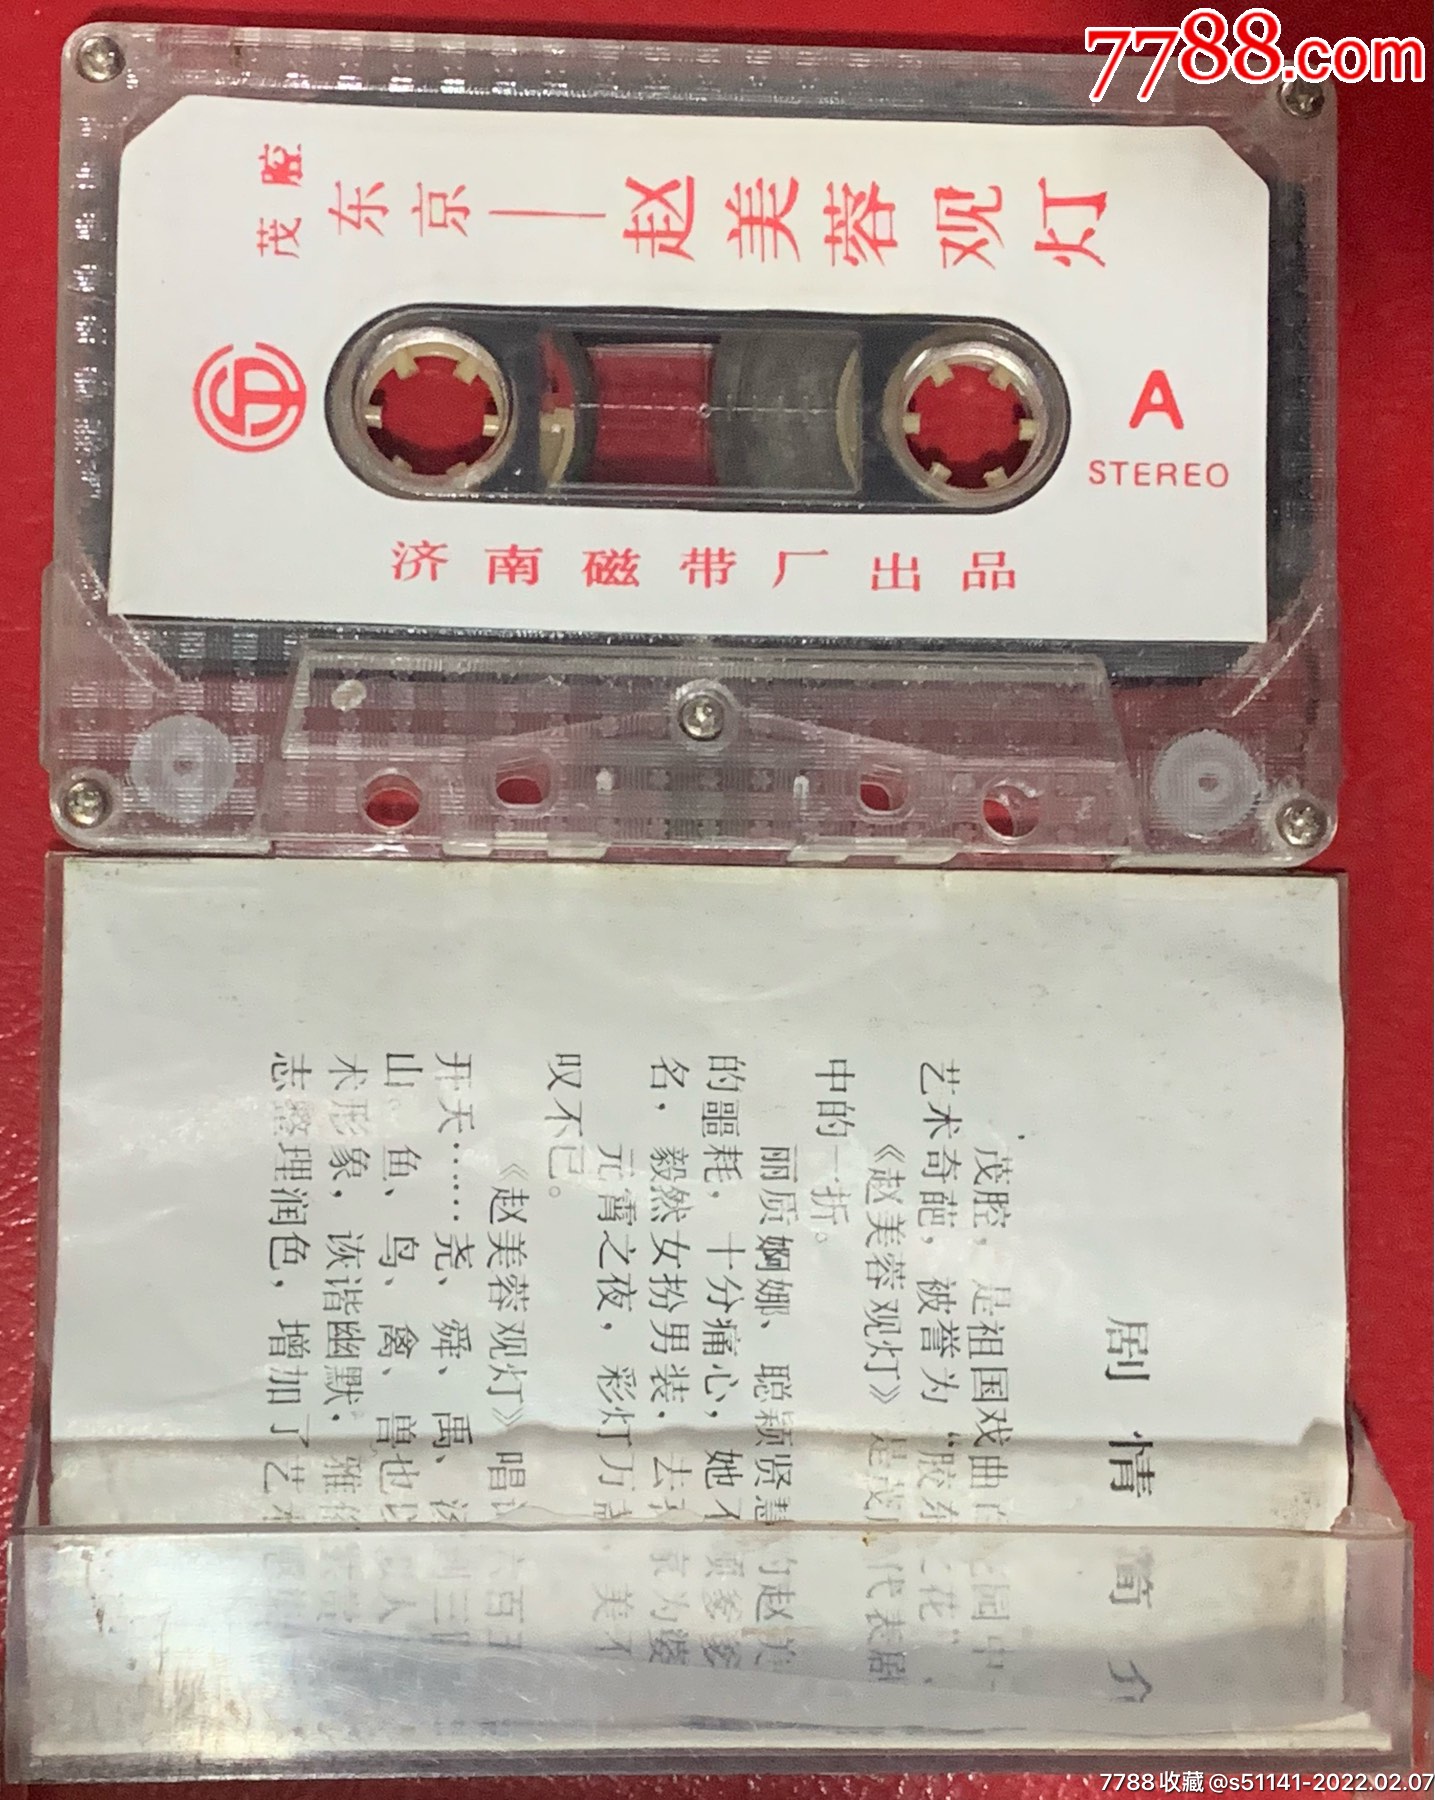 7788.com
茂腔
东京——赵美蓉观灯
A
STEREO
济南磁带厂出品
剧情简介
茂腔，是祖国戏曲百花园中一
艺术奇葩，被誉为“胶东之花”，
《赵美蓉观灯》是茂腔代表剧
中的一折。
丽质婀娜、聪颖贤慧的赵美
的噩耗，十分痛心，她不顾爹爹
名，毅然女扮男装，去京为婆
元霄之夜，彩灯万盏 美不
叹不已。
《赵美蓉观灯》唱词六百五
开天……尧、舜、禹、汤到三国
山。鱼、鸟、禽、兽也以拟人
术形象，诙谐幽默，雅俗共赏
志整理润色，增加了艺术
7788收藏@s51141-2022.02.07